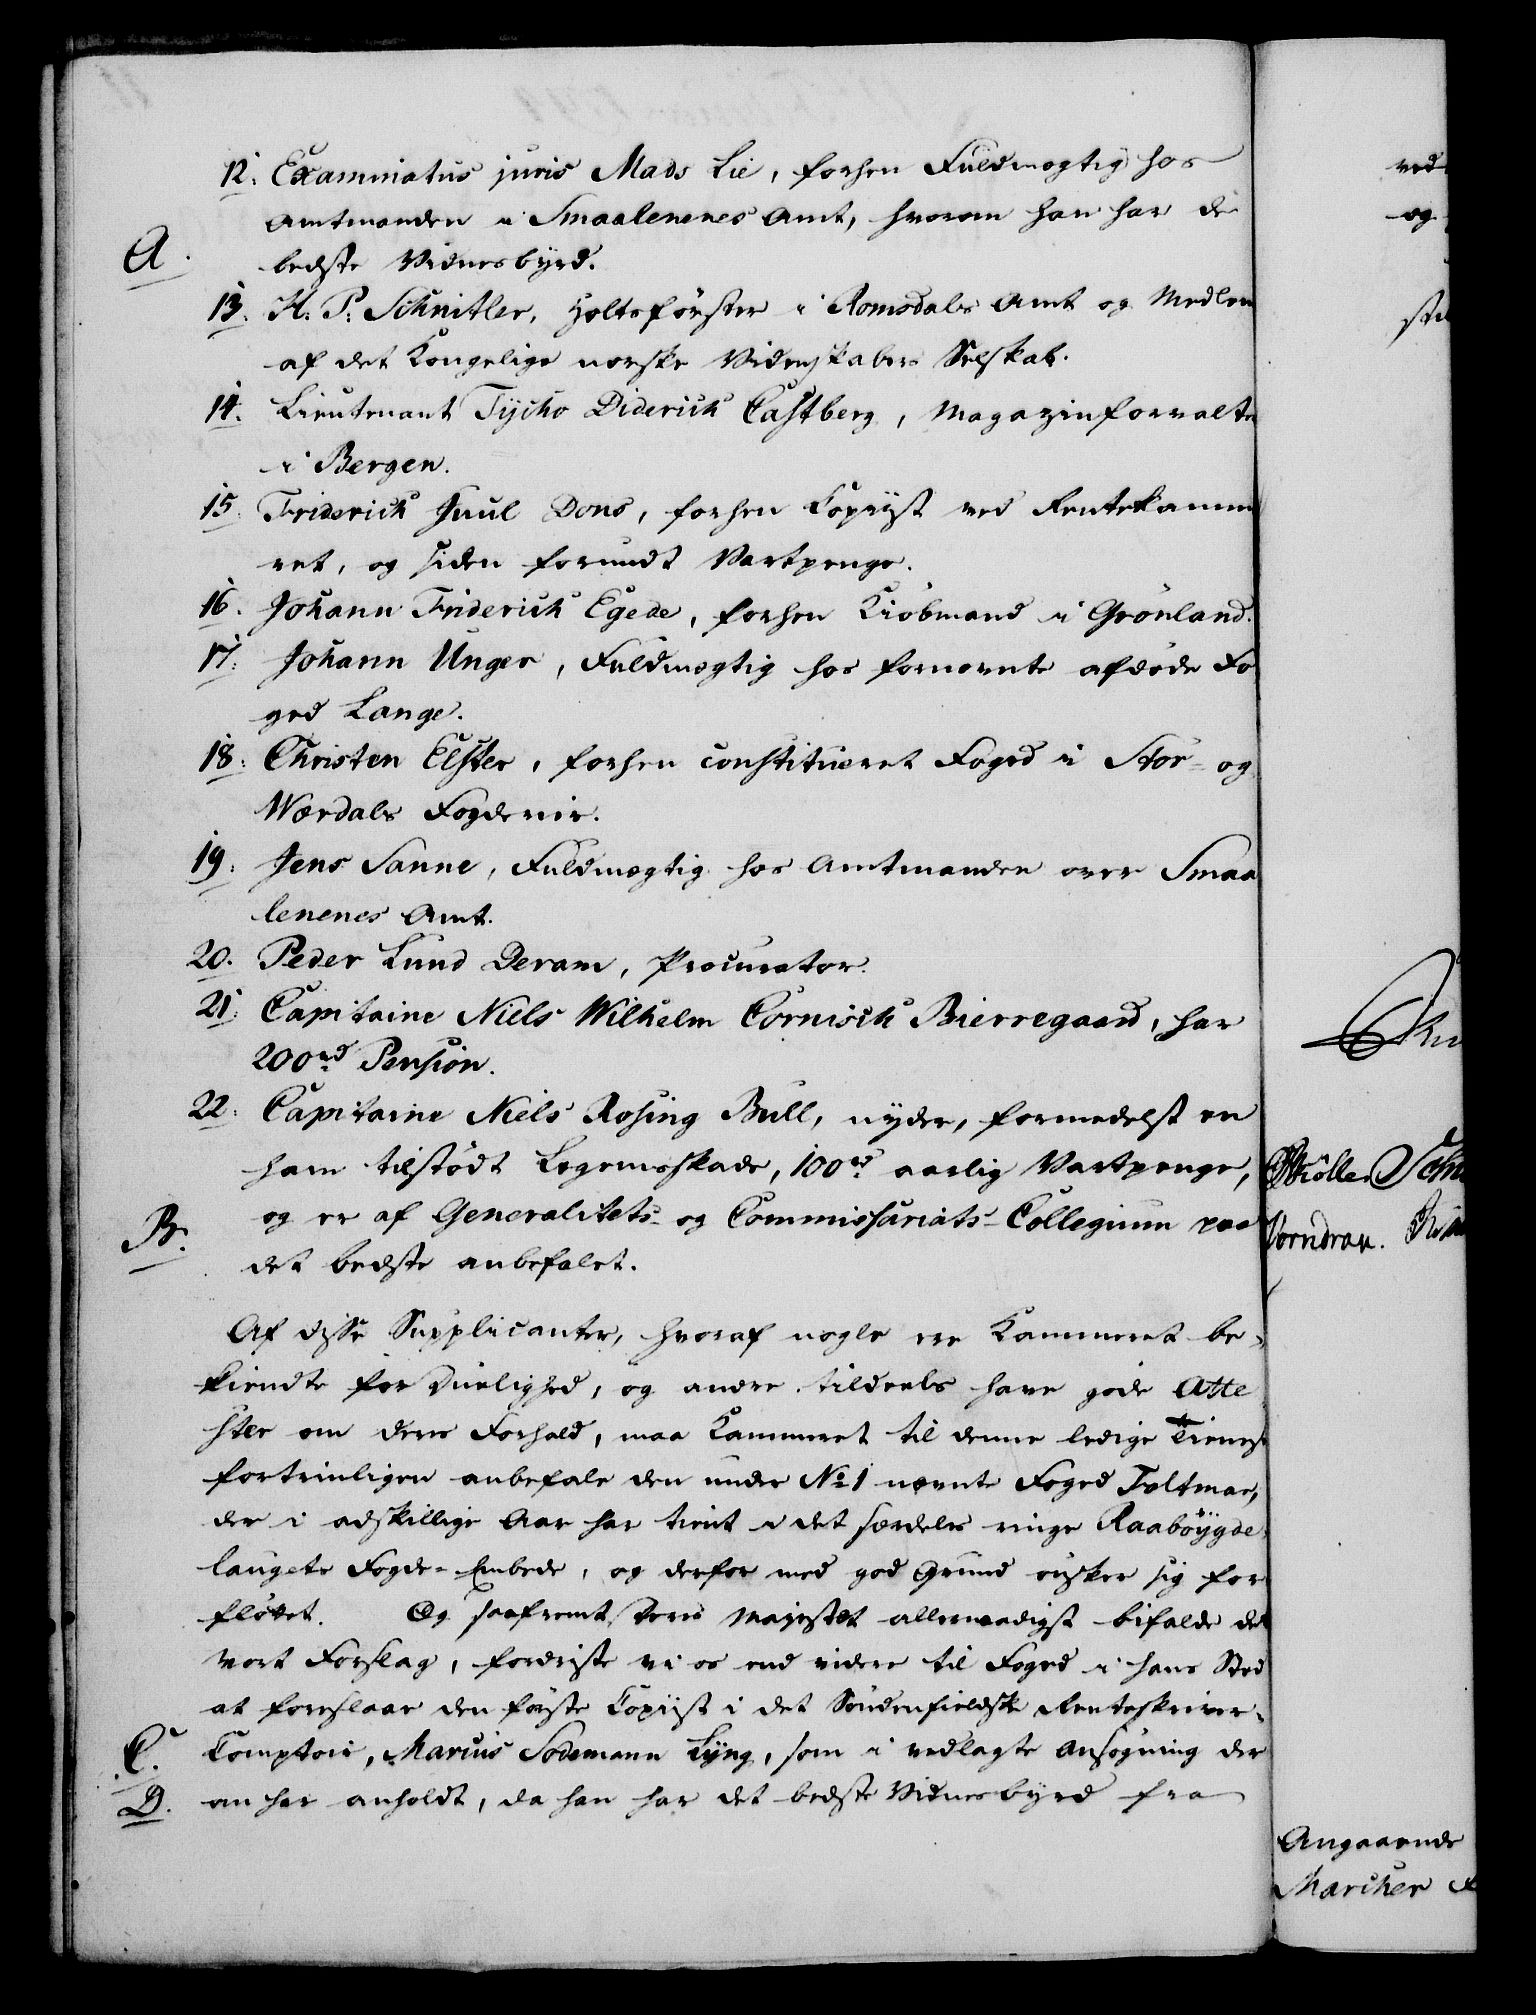 12. Examinatus juris Mads Lie, forhen Fuldmægtig hos
Amtmanden i Smaalenenes Amt, hvorom han har de
A.
bedste Vidnesbyrd.
13. H. P. Schnitler, Holtsförster i Romsdals Amt og Medlem
af det Kongelige norske Videnskabers Selskab.
14. Lieutenant Tycho Diderich Castberg, Magazinforvalte
i Bergen.
15. Friderich Juul Dons, forhen Copiist ved Rentekamme
ret, og siden forundt Vartpenge.
16. Johann Friderich Egede, forhen Kiöbmand i Grönland.
17. Johann Unger, Fuldmægtig hos fornævnte afdöde Fo
ged Lange.
18. Christen Elster, forhen constitueret Foged i Stör- og
Værdals Fogderie.
19. Jens Sanne, Fuldmægtig hos Amtmanden over Smaa
lenenes Amt.
20. Peder Lund Deram, Procurator.
21. Capitaine Niels Wilhelm Cornisch Bierregaard, har
200 rd Pension.
22. Capitaine Niels Rosing Bull, nyder, formedelst en
ham tilstödt Legemsskade, 100 rd aarlig Vartpenge,
og er af Generalitets- og Commissariats-Collegium paa
B.
det bedste anbefalet.
Af disse Supplicanter, hvoraf nogle ere Kammeret be-
kiendte for Duelighed, og andre tildeels have gode Atte
ster om deres Forhold, maa Kammeret til denne ledige Tieneste
fortrinligen anbefale den under No 1 nævnte Foged Toltmar,
der i adskillige Aar har tient i det særdeles ringe Raaböygde
laugets Fogde-Embede, og derfor med god Grund önsker sig for
flöttet. Og saafremt Deres Majestæt allernaadigst bifalde det
vort Forslag, fordriste vi os end videre til Foged i hans Sted
at foreslaae den förste Copiist i det Söndenfieldske Renteskriver-
C.
Comptoir, Marcus Sodemann Lyng, som i vedlagte Ansögning der
D.
om har anholdt, da han har det bedste Vidnesbyrd fra
ved
og
Vorndran.
Angaaende
Marcher